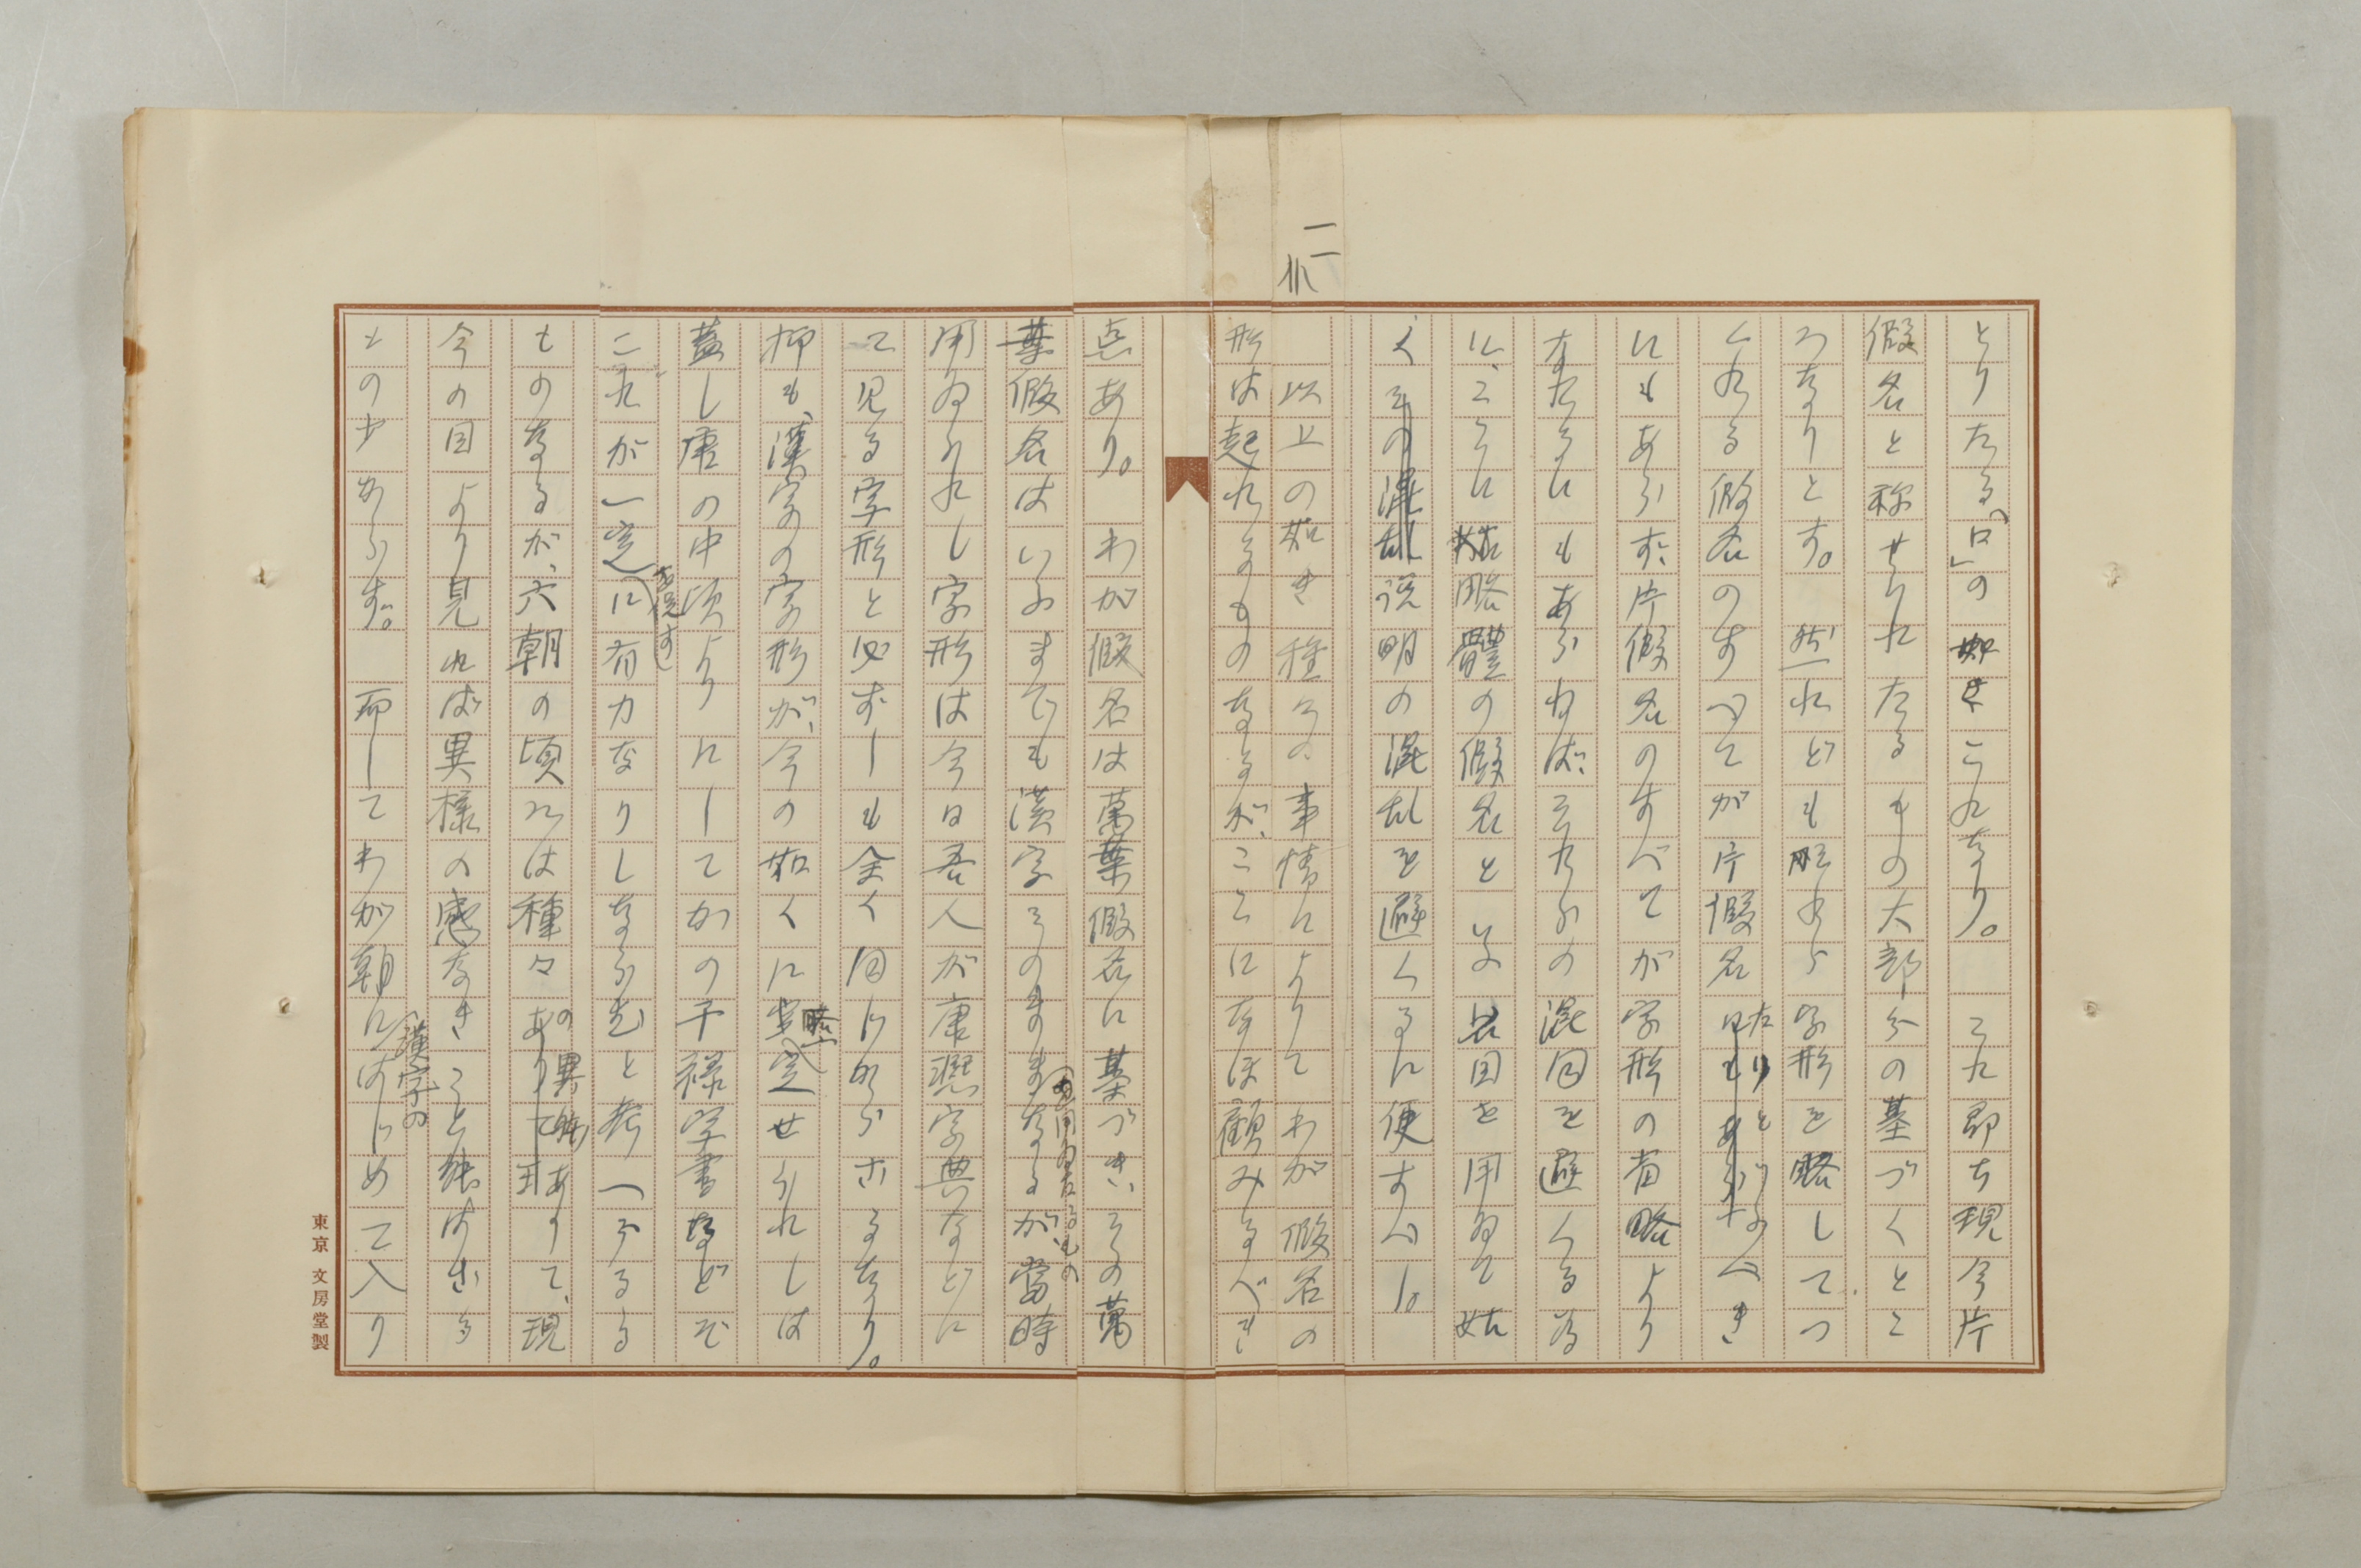 とりたる「口」の如きこれなり。 これ即ち現今片
假名と称せられたるものの大部分の基づくとこ
ろなりとす。 然れども既にかく字形を略してつ
くれる假名のすべてが片假名たりとす べき
にもあらず、片假名のすべてが字形の省略より
来れるにもあらねば、それらの混同を避くる為
に、ここに姑く略體の假名といふ名目を用ゐて姑
く説明の混乱を避くるに便すべし。
以上の如き種々の事情によりてわが假名の
形は起れるものなるが、ここになほ顧みるべき
点あり。 わが假名は萬葉假名に基づき、その萬
葉假名はいふまでも漢字そのままを用ゐたるものなるが、當時
用ゐられし字形は今日吾人が康熙字典などに
て見る字形と必ずしも全く同じからざるなり。
抑も、漢字の字形が、今の如くに略一定せられしは
蓋し唐の中頃よりにしてかの干禄字書などぞ
これが一定に 有力なりしならむと考へらるる
ものなるが、六朝の頃には種々の異體ありて、現
今の目より見れば異様の感なきこと能はざる
もの少からず。 而してわが朝に漢字のはじめて入り
東京 文房堂製